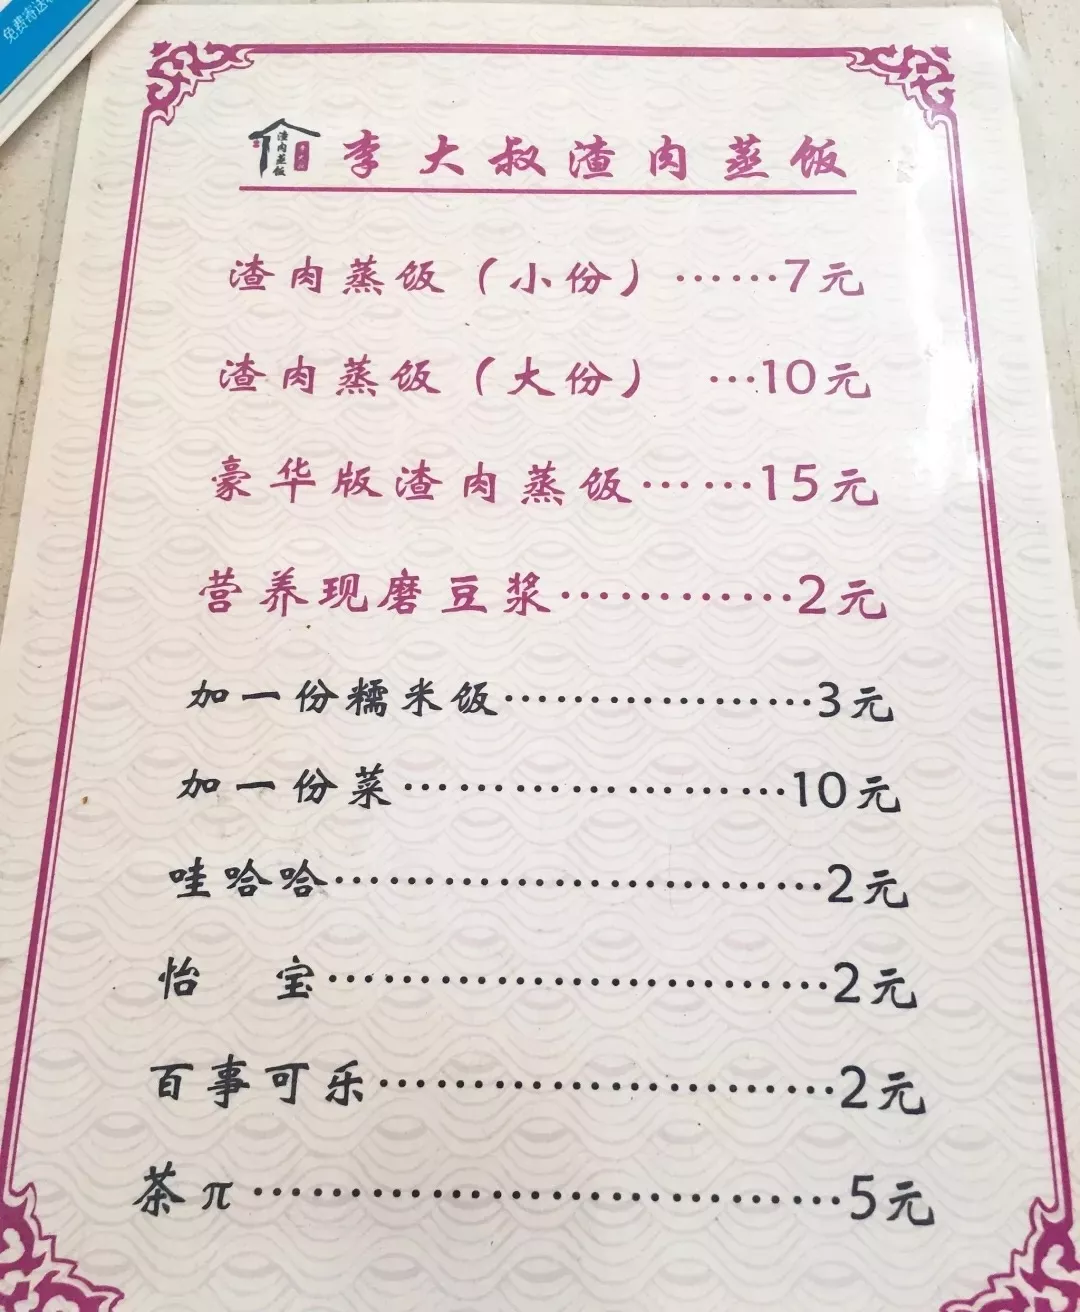 免费寄送
渣肉蒸饭
李大叔渣肉蒸饭
渣肉蒸饭（小份）……7元
渣肉蒸饭（大份） …10元
豪华版渣肉蒸饭……15元
营养现磨豆浆…………2元
加一份糯米饭………………3元
加一份菜…………………10元
哇哈哈………………………2元
怡 宝………………………2元
百事可乐……………………2元
茶π…………………………5元